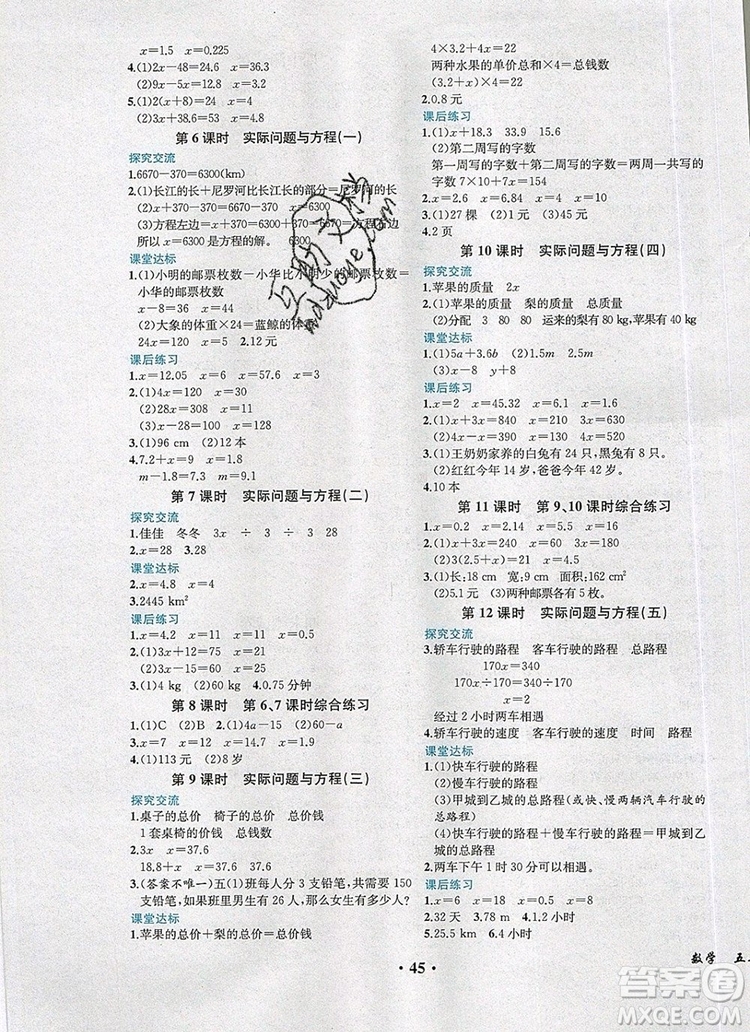 x=1.5　x=0.225
4.(1)2x－48=24.6　x=36.3
(2)9x－5x=12.8　x=3.2
5.(1)2(x＋8)=24　x=4
(2)3x＋38.6=53　x=4.8
第6课时　实际问题与方程(一)
探究交流
1.6670－370=6300(km)
2.(1)长江的长＋尼罗河比长江长的部分=尼罗河的长
(2)x＋370－370=6670－370　x=6300
(3)方程左边=x＋370=6300＋370=6670=方程右边
所以x=6300是方程的解。　6300
课堂达标
1.(1)小明的邮票枚数－小华比小明少的邮票枚数=
小华的邮票枚数
x－8=36　x=44
(2)大象的体重×24=蓝鲸的体重
24x=120　x=5　2.12元
课后练习
1.x=12.05　x=6　x=57.6　x=3
2.(1)4x=372　x=93
(2)28x=308　x=11
(3)x－28=100　x=128
3.(1)96 cm　(2)12本
4.7.2＋x=9.1　x=1.9
m－1.8=15　m=16.8
第7课时　实际问题与方程(二)
探究交流
1.佳佳　冬冬　3x　÷　3　÷　3　28
2.x=28　3.28
课堂达标
2.x=4.8　x=4
3.2445 km²
课后练习
1.x=4　x=2.8　x=9　x=30.5
2.(1)3x＋12=36　x=8
(2)2x－15=75　x=45
3.(1)4 kg　(2)60 kg　4.0.75分钟
第8课时　第6、7课时综合练习
1.(1)C　(2)B　2.(1)4a－15　(2)60－a
3.x=7　x=12　x=3　x=2
4.(1)113元　(2)8岁
第9课时　实际问题与方程(三)
探究交流
1.桌子的总价　椅子的总价　总价钱
1套桌椅的价钱　总钱数
2.18.8＋2x=37.6
18.8＋x=37.6
3.(答案不唯一)五(1)班每人分3支铅笔,共需要150
支铅笔,如果班里男生有26人,那么女生有多少人?
课堂达标
1.苹果的总价＋梨的总价=总价钱
4×3.2＋4x=22
两种水果的单价总和×4=总钱数
(3.2＋x)×4=22
2.0.8元
课后练习
1.(1)x＋18.3　33.9　x＋18.3
(2)第二周写的字数
第一周写的字数＋第二周写的字数=两周一共写的
字数7×10＋7x=154
2.x=6.8　x=7.4　x=0.7　x=2
3.(1)27棵　(2)1元　(3)45元
4.2页
第10课时　实际问题与方程(四)
探究交流
1.苹果的质量　2x
2.(1)苹果的质量　梨的质量　总质量
(2)分配　3　80　80　运来的梨有80 kg,苹果有40 kg
课堂达标
1.(1)5a＋3.6b　(2)1.5m　2.5m
(3)x－y　x＋8
课后练习
1.x=2　x=45.32　x=6.1　x=1.6
2.(1)x＋3x=840　x=210　3x=630
(2)4x－x=390　x=130　4x=520
3.(1)王奶奶家养的白兔有24只,黑兔有6只。
(2)红红今年14岁,爸爸今年42岁。
4.10本
第11课时　第9、10课时综合练习
1.x=0.2　x=14　x=2.14　x=15
2.(1)x＋3x=60　x=15
(2)2(3.8＋x)=51　x=21.7
3.(1)长:18 cm　宽:9 cm　面积:162 cm²
(2)5.1元　(3)两种邮票各有5枚。
第12课时　实际问题与方程(五)
探究交流
3.轿车行驶的路程　客车行驶的路程　总路程
170x=340
170x÷170=340÷170
x=2
经过2小时两车相遇
4.轿车行驶的速度　客车行驶的速度　时间　路程
课堂达标
1.(1)快车行驶的路程
(2)慢车行驶的路程
(3)甲城到乙城的总路程(或快、慢两辆汽车行驶的
总路程)
(4)快车行驶的路程＋慢车行驶的路程=甲城到乙
城的总路程
2.两车下午1时30分可以相遇。
课后练习
1.x=6　x=18　x=8　x=15
2.32天　3.7天　4.1.2小时
5.25.5元　6.4小时
• 45 •
数学　五
答案圈
MXQE.COM